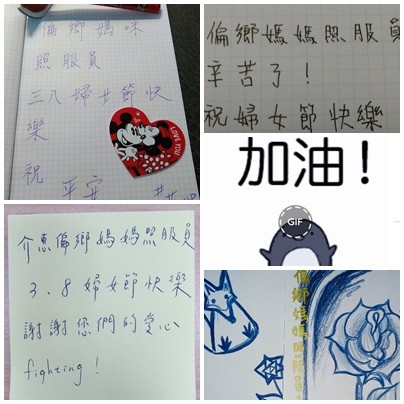 偏鄉媽咪
照服員
三八婦女節快
樂
祝 平安
LOVE YOU
偏鄉媽媽照服員
辛苦了!
祝婦女節快樂
加油!
GIF
介惠偏鄉媽媽照服員
3.8婦女節快樂
謝謝您們的愛心
fighting!
偏鄉媽媽